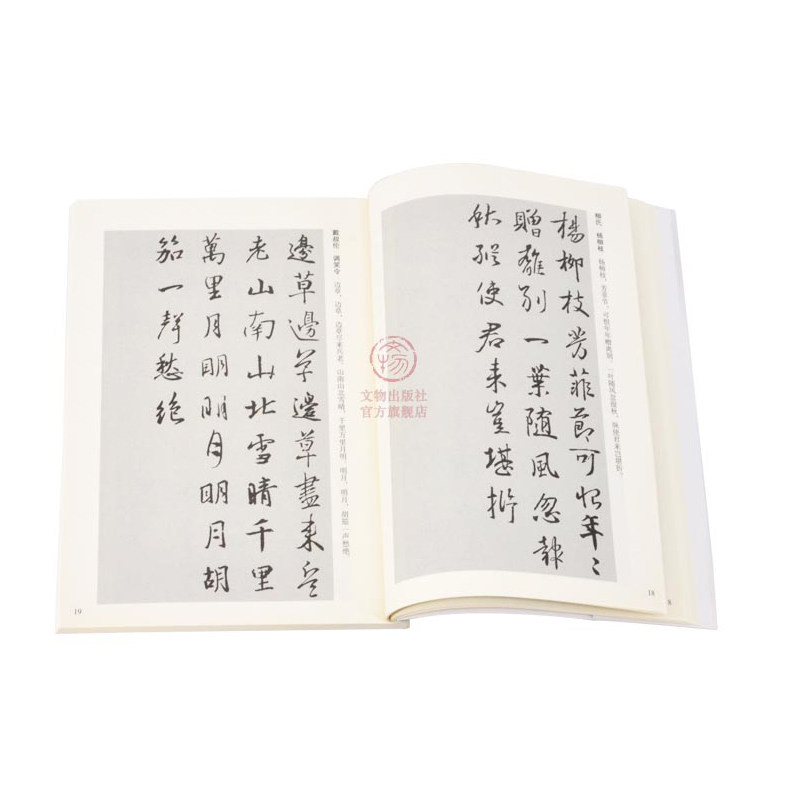 柳氏 杨柳枝 杨柳枝，芳菲节，可恨年年赠离别。一叶随风忽报秋，纵使君来岂堪折。
楊柳枝芳菲節可恨年〻
贈離別一葉隨風忽報
秋縱使君来豈堪折
18
戴叔伦 调笑令 边草，边草，边草尽来兵老。山南山北雪晴，千里万里月明。明月，明月，胡笳一声愁绝。
邊草邊草邊草盡来兵
老山南山北雪晴千里
萬里月明明月明月胡
笳一聲愁絶
19
文物出版社
官方旗舰店